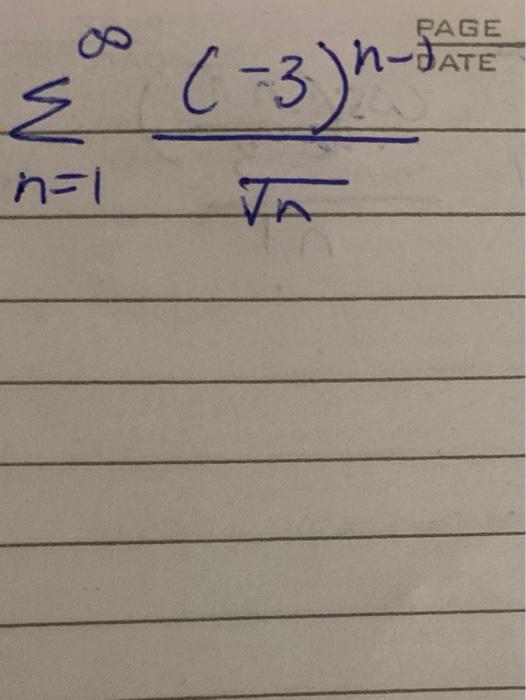 PAGE
DATE
∞
∑ (-3)^{n-1}
n=1 √n